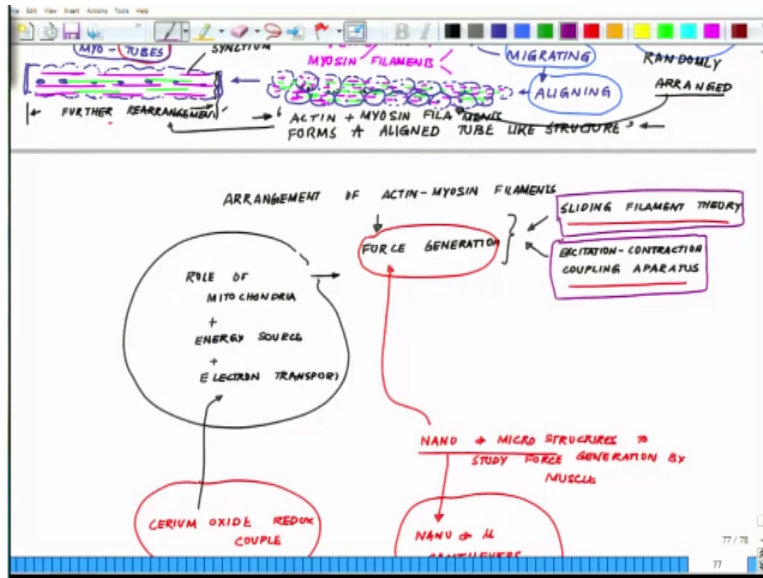 File Edit View Insert Actions Tools Help
MYO - TUBES
SYNCYTIUM
MYOSIN FILAMENTS
MIGRATING
RANDOMLY
ARRANGED
ALIGNING
FURTHER REARRANGEMENT
" ACTIN + MYOSIN FILAMENTS
FORMS A ALIGNED TUBE LIKE STRUCTURE "
ARRANGEMENT OF ACTIN-MYOSIN FILAMENTS
SLIDING FILAMENT THEORY
FORCE GENERATION
EXCITATION-CONTRACTION
COUPLING APPARATUS
ROLE OF
MITOCHONDRIA
+
ENERGY SOURCE
+
ELECTRON TRANSPORT
NANO & MICRO STRUCTURES TO
STUDY FORCE GENERATION BY
MUSCLE
CERIUM OXIDE REDOX
COUPLE
NANO or μ
CANTILEVERS
77 / 78
77